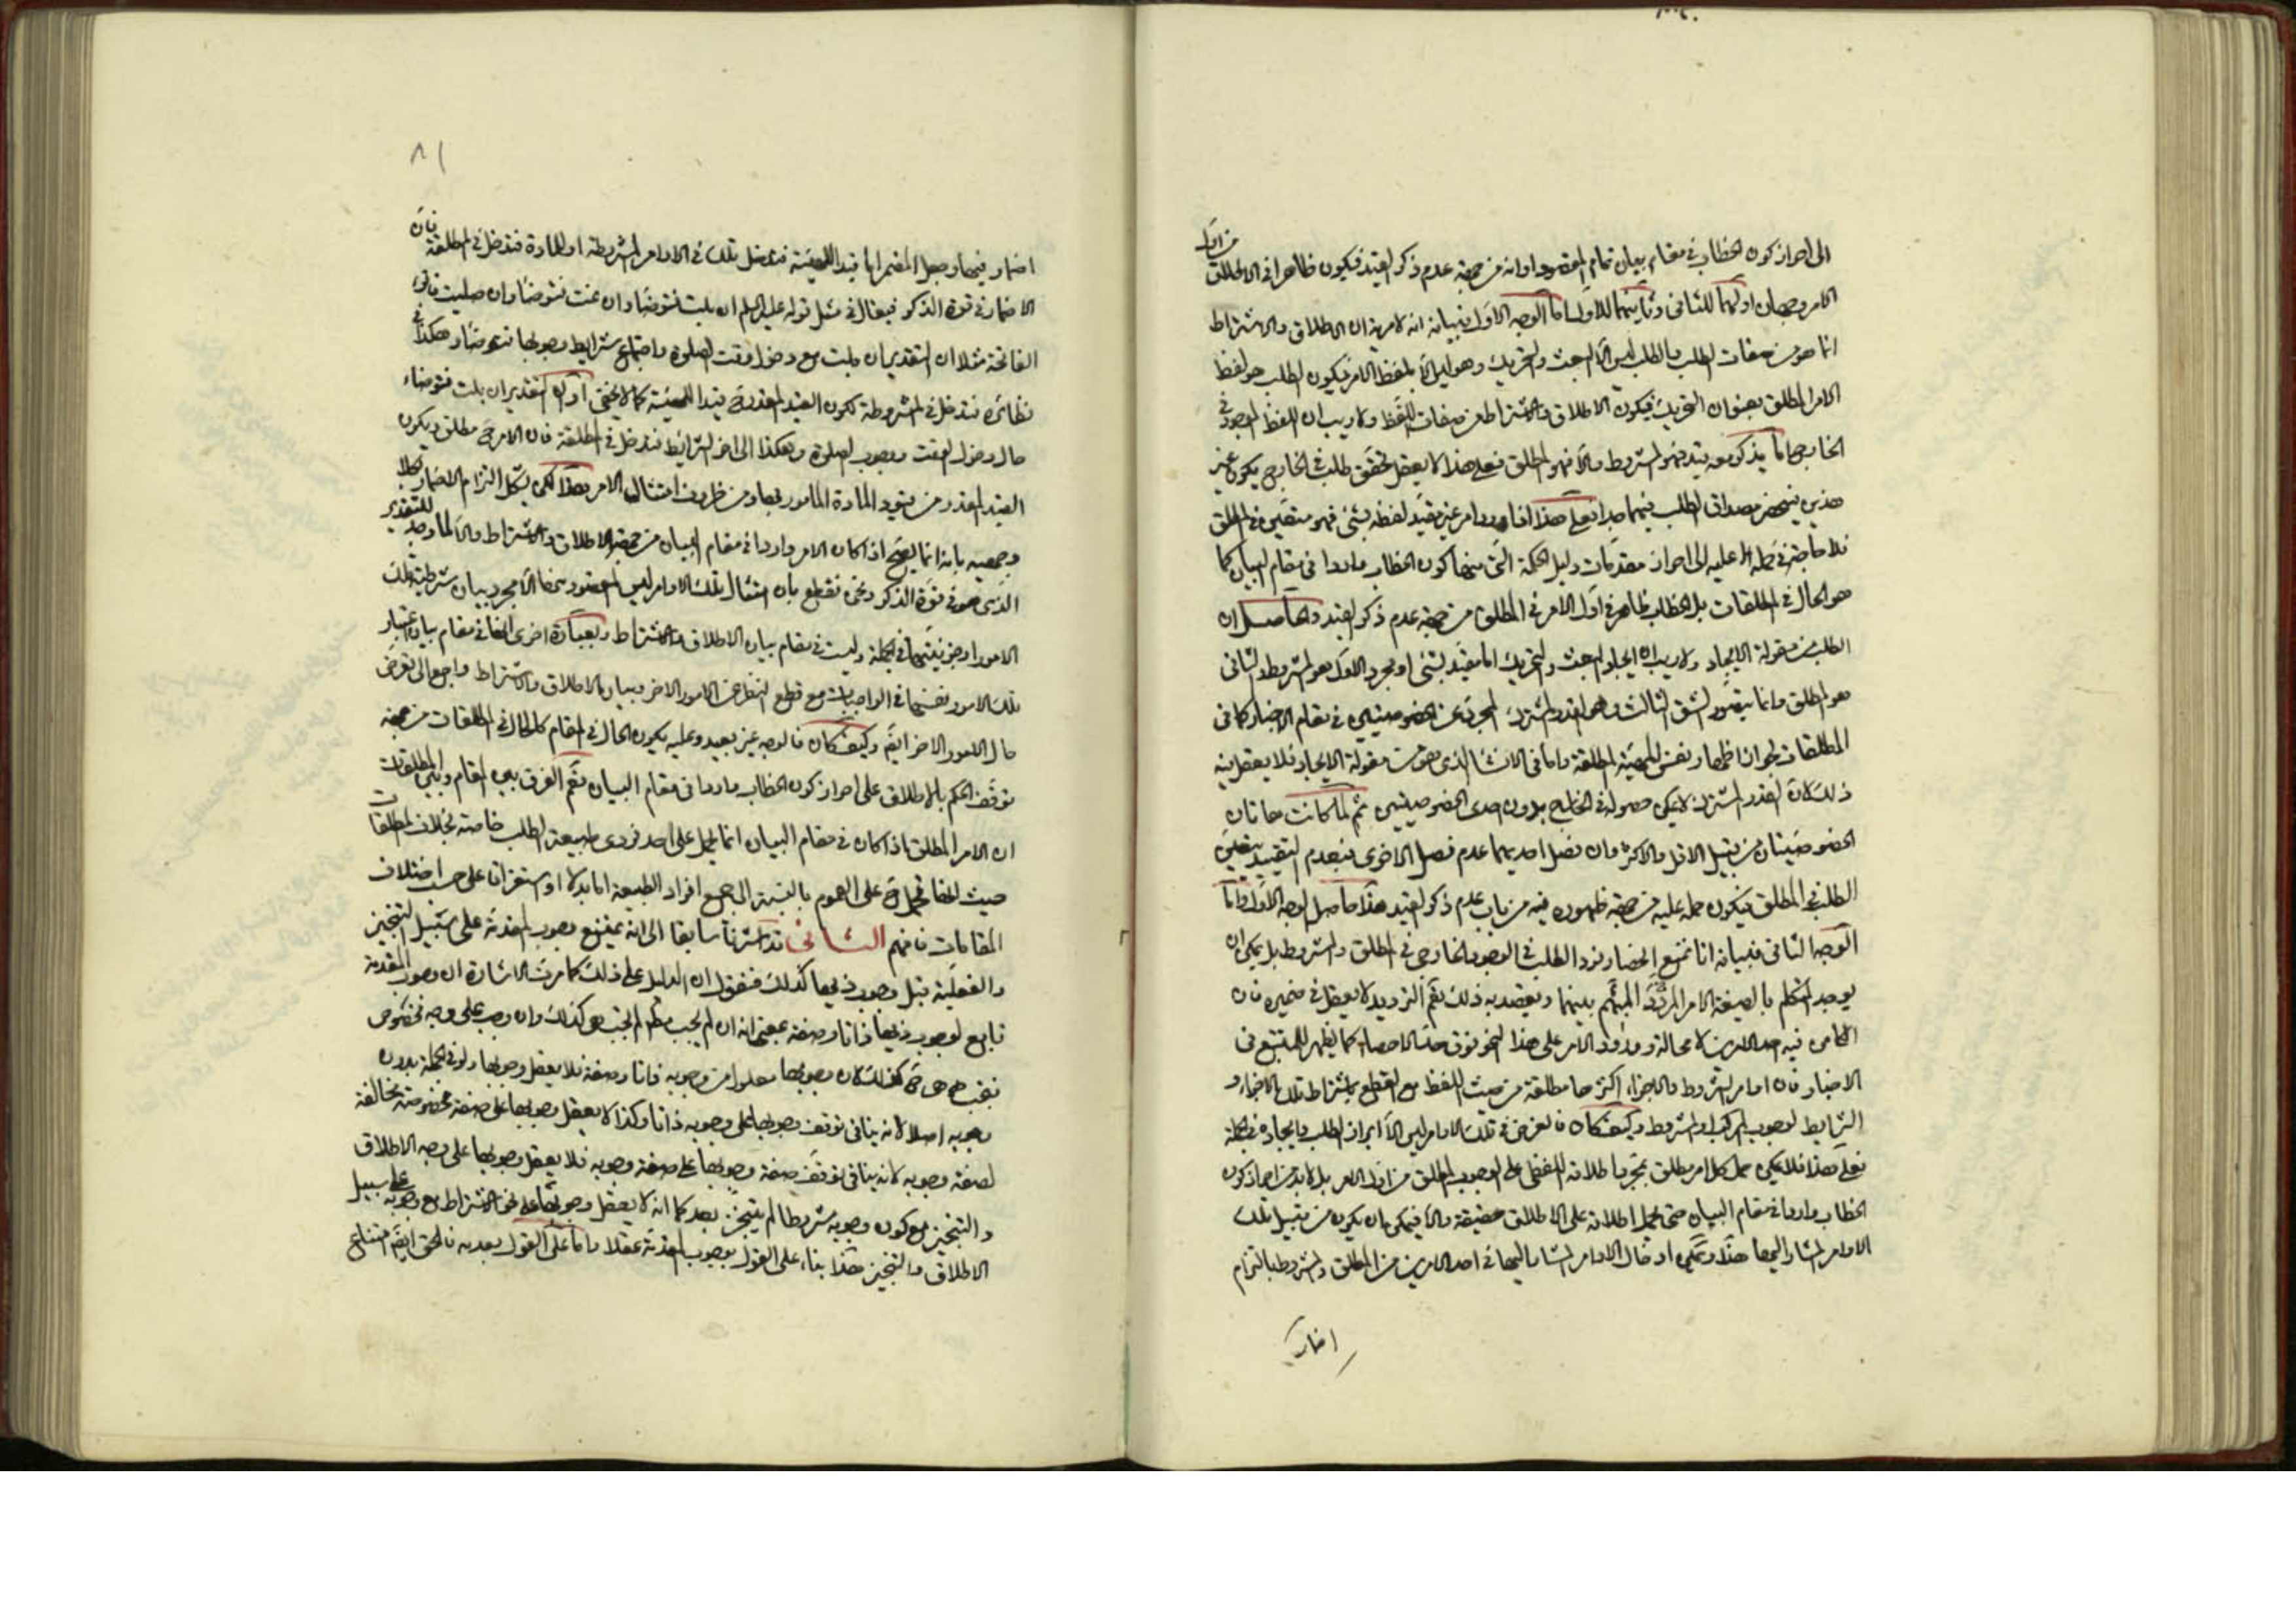 الى احراز كون الخطاب في مقام بيان تمام المقصود او انه من جهة عدم ذكر القيد فيكون ظاهرا في الاطلاق من اول
الامر وجهان اولهما للثاني وثانيهما للاول اما الوجه الاول فبيانه انه لا مرية ان الاطلاق والاشتراط
انما هو من صفات الطلب والطلب ليس الا البعث والتحريك وهو ليس الا بلفظ الامر فيكون الطلب هو لفظ
الامر المطلق بعنوان التحريك فيكون الاطلاق والاشتراط من صفات اللفظ ولا ريب ان اللفظ الموجود في
الخارج اما يذكر معه قيد فهو المشروط والا فهو المطلق فعلى هذا لا يعقل تحقق طلب في الخارج يكون غير
هذين فينحصر مصداق الطلب فيهما جدا فعلى هذا اذا ورد امر غير مقيد لفظه بشئ فهو متعين في المطلق
فلا حاجة في حمله عليه الى احراز مقدمات دليل الحكمة التي منها كون الخطاب واردا في مقام البيان كما
هو الحال في المطلقات بل الخطاب ظاهر في اول الامر في المطلق من جهة عدم ذكر القيد والحاصل ان
الطلب من مقولة الايجاد ولا ريب ان ايجاد البعث والتحريك اما مقيد بشئ او مجرد الاول هو المشروط والثاني
هو المطلق وانما يتصور الشق الثالث وهو القدر المشترك المجرد عن الخصوصيتين في مقام الاخبار كما في
المطلقات لجواز اظهار نفس المهية المطلقة واما في الانشاء الذي هو من مقولة الايجاد فلا يعقل فيه
ذلك لان القدر المشترك لا يمكن حصوله في الخارج بدون احدى الخصوصيتين ثم لما كانت هاتان
الخصوصيتان من قبيل الاقل والاكثر وان فصل احديهما عدم فصل الاخرى فبعدم التقييد يتعين
الطلب في المطلق فيكون حمله عليه من جهة ظهوره فيه من باب عدم ذكر القيد هذا حاصل الوجه الاول واما
الوجه الثاني فبيانه انا نمنع انحصار فرد الطلب في الوجود الخارجي في المطلق والمشروط بل يمكن ان
يوجد المتكلم بالصيغة الامر المردد المبهم بينهما ويقصد به ذلك نعم الترديد لا يعقل في ضميره فان
الكامن فيه احد الامرين لا محالة وورود الامر على هذا النحو فوق حد الاحصاء كما يظهر للمتتبع في
الاخبار فان اوامر الشروط والاجزاء اكثرها مطلقة من حيث اللفظ مع القطع باشتراط تلك الاجزاء و
الشرايط لوجوب المركب او المشروط وكيف كان فالغرض في تلك الاوامر ليس الا ابراز الطلب وايجاده في الجملة
فعلى هذا فلا يمكن حمل كل امر مطلق بمجرد اطلاقه اللفظي على الوجوب المطلق من اول الامر بل لا بد من احراز كون
الخطاب واردا في مقام البيان حتى يحمل اطلاقه على الاطلاق حقيقة والا فيمكن ان يكون من قبيل تلك
الاوامر المشار اليها هذا ويمكن ادخال الاوامر المشار اليها في احد الامرين من المطلق والمشروط بالتزام
اضمار
٨١
اضمار فيها وجعل المضمر اما قيدا للهيئة فتدخل تلك في الاوامر المشروطة او للمادة فتدخل في المطلقة فان
الاضمار في قوة الذكر فيقال في مثل قوله عليه السلم ان بلت فتوضأ وان نمت فتوضأ وان صليت فاقرء
الفاتحة مثلا ان التقدير ان بلت مع دخول وقت الصلوة واجتماع شرايط وجوبها فتوضأ وهكذا في
نظائره فتدخل في المشروطة لكون القيد المقدر ح قيدا للهيئة كما لا يخفى او ان التقدير ان بلت فتوضاء
حال دخول الوقت ووجوب الصلوة وهكذا الى اخر الشرائط فتدخل في المطلقة فان الامر ح مطلق ويكون
القيد المقدر من قيود المادة المأمور بها ومن ظروف امتثال الامر هذا لكن يشكل التزام الاضمار بكلا
وجهيه بانه انما يصح اذا كان الامر واردا في مقام البيان من جهة الاطلاق والاشتراط والا لما وجه للتقدير
الذي هو في قوة الذكر ونحن نقطع بان امثال تلك الاوامر ليس المقصود منها الا مجرد بيان شرطية تلك
الامور او جزئيتها في الجملة وليست في مقام بيان الاطلاق والاشتراط وبعبارة اخرى انها في مقام بيان اعتبار
تلك الامور نفسها في الواجبات مع قطع النظر عن الامور الاخر وبيان الاطلاق والاشتراط راجع الى تعرض
حال الامور الاخر ايضا وكيف كان فالوجه غير بعيد وعليه يكون الحال في المقام كالحال في المطلقات من جهة
توقف الحكم بالاطلاق على احراز كون الخطاب واردا في مقام البيان نعم الفرق بين المقام وبين المطلقات
ان الامر المطلق اذا كان في مقام البيان انما يحمل على احد فردي طبيعة الطلب خاصة بخلاف المطلقات
حيث انها تحمل ح على العموم بالنسبة الى جميع افراد الطبيعة اما بدلا او استغراقا على حسب اختلاف
المقامات فافهم الثاني قد اشرنا سابقا الى انه يمتنع وجوب المقدمة على سبيل التنجيز
والفعلية قبل وجوب ذيها كذلك فنقول ان الدليل على ذلك كما مرت الاشارة ان وجوب المقدمة
تابع لوجوب ذيها ذاتا وصفة بمعنى انه ان لم يجب لم تجب هي كذلك وان وجب على وجه مخصوص
تجب هي ح كذلك لان وجوبها معلول من وجوبه ذاتا وصفة فلا يعقل وجوبها ولو في الجملة بدون
وجوبه اصلا لانه ينافي توقف وجوبها على وجوبه ذاتا وكذا لا يعقل وجوبها على صفة مخصوصة مخالفة
لصفة وجوبه لانه ينافي توقف صفة وجوبها على صفة وجوبه فلا يعقل وجوبها على وجه الاطلاق
والتنجيز مع كون وجوبه مشروطا لم يتنجز بعد كما انه لا يعقل وجوبها على نحو الاشتراط مع وجوبه على سبيل
الاطلاق والتنجيز هذا بناء على القول بوجوب المقدمة عقلا واما على القول بعدمه فالحق ايضا امتناع